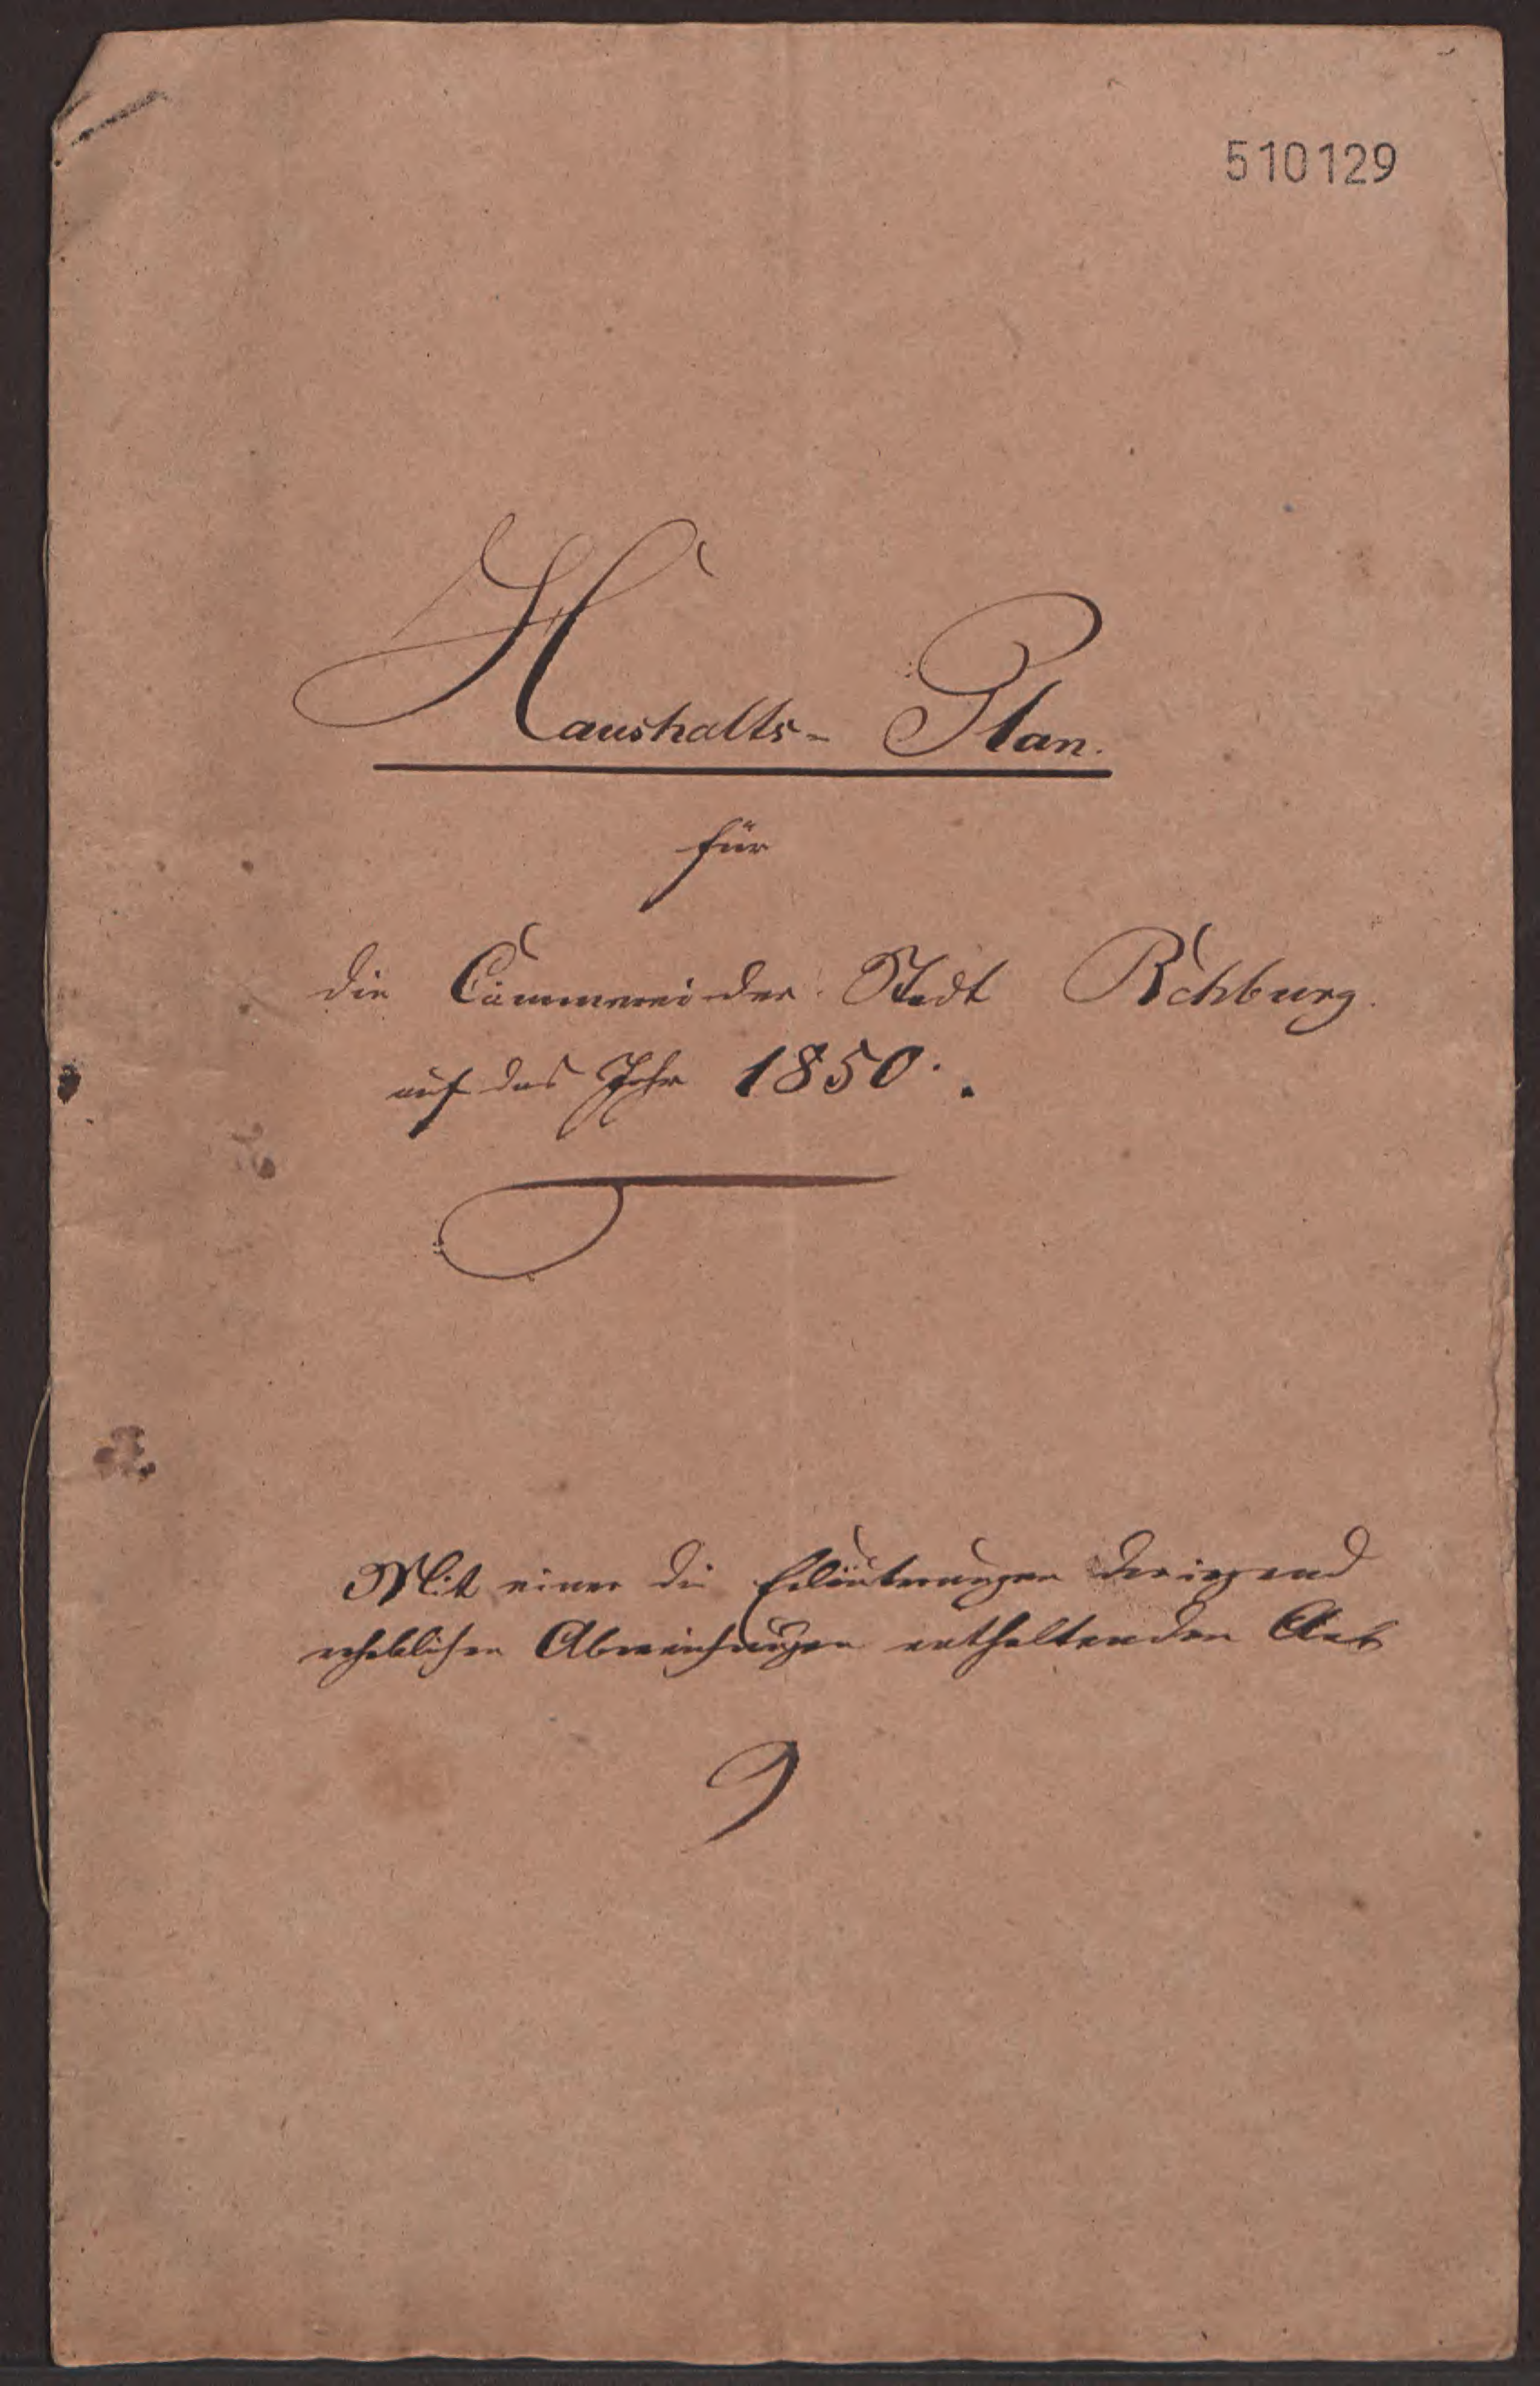 510129
Haushalts- Plan.
für
die Cämmerei der Stadt Rehburg.
auf das Jahr 1850.
Mit einer die Erläuterungen der irgend
erheblichen Abweichungen enthaltenden